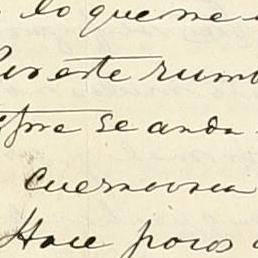 lo que me
Por este rumb
se anda
cuernavaca
Hace pocos